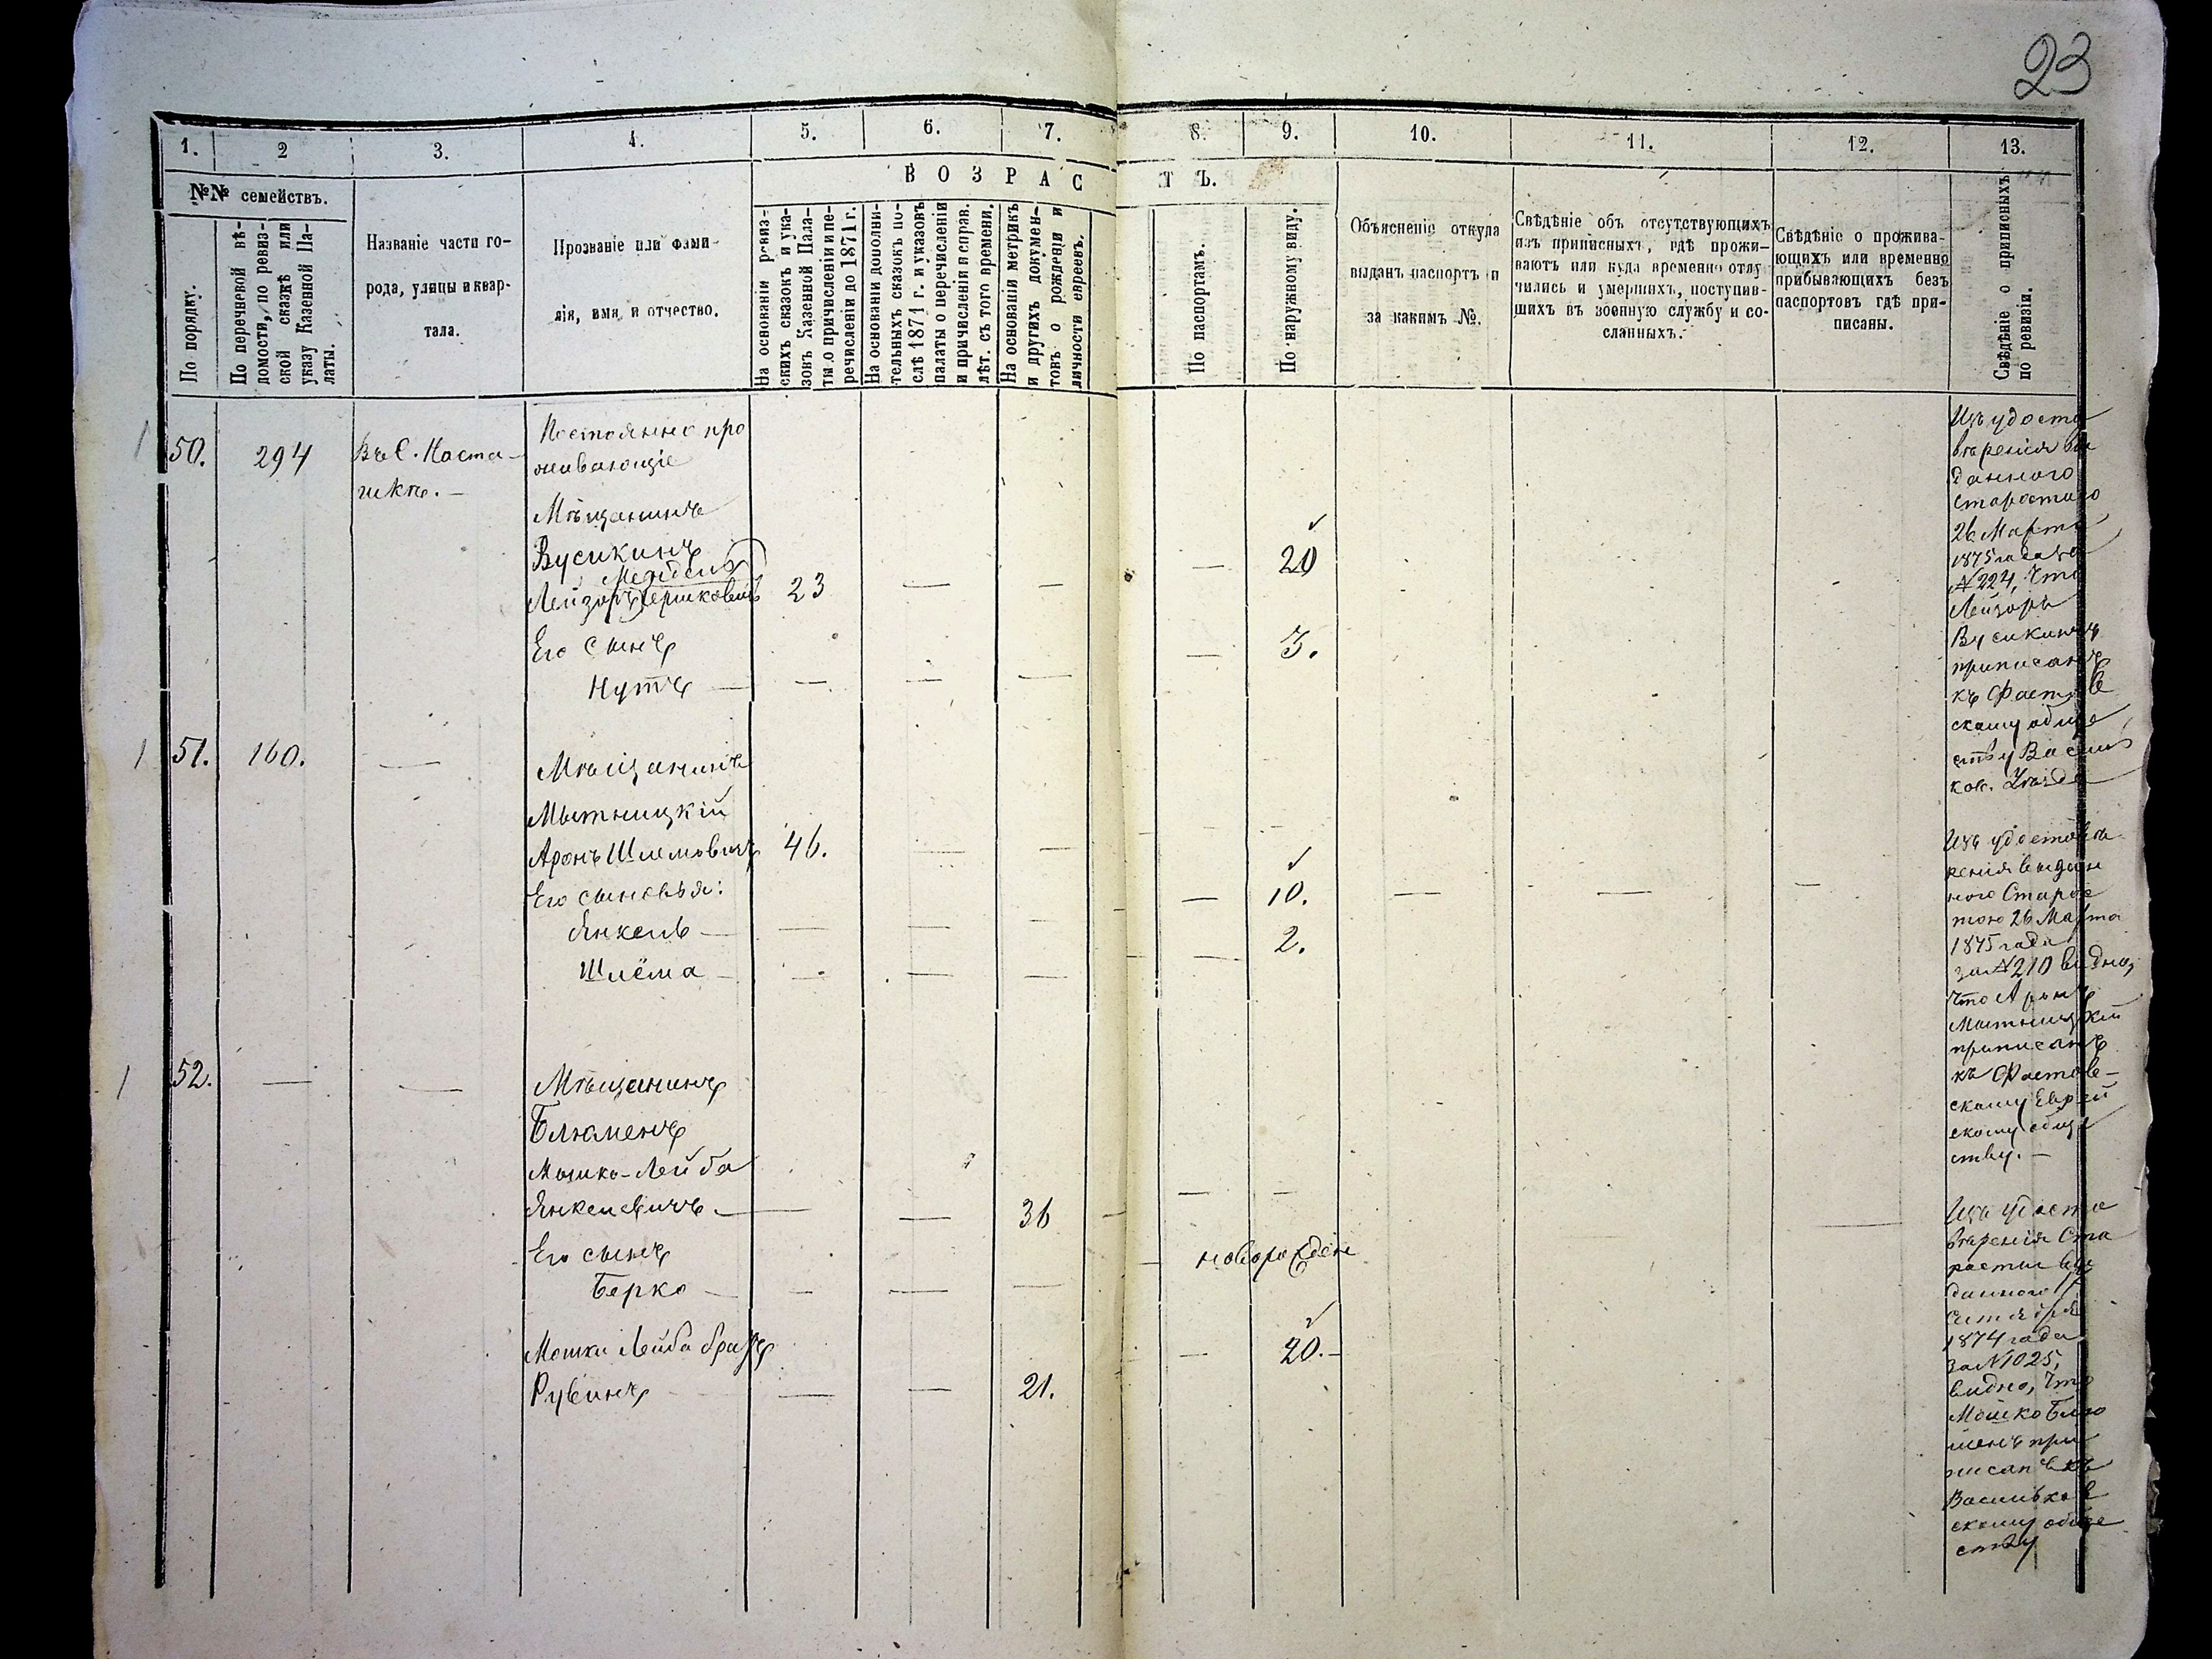 23
1. 2 3. 4. 5. 6. 7. 8. 9. 10. 11. 12. 13.
№№ семействъ.
По порядку.
По перечневой вѣ-
домости, по ревиз-
ской сказкѣ или
указу Казенной Па-
латы.
Названіе части го-
рода, улицы и квар-
тала.
Прозваніе или фами-
лія, имя и отчество.
ВОЗРАСТЪ.
На основаніи ревиз-
скихъ сказокъ и ука-
зовъ Казенной Пала-
ты о причисленіи и пе-
речисленіи до 1871 г.
На основаніи дополни-
тельныхъ сказокъ по-
слѣ 1871 г. и указовъ
палаты о перечисленіи
и причисленіи в справ.
лѣт. съ того времени.
На основаніи метрикъ
и другихъ докумен-
товъ о рожденіи и
личности евреевъ.
По паспортамъ.
По наружному виду.
Объясненіе откуда
выданъ паспортъ и
за какимъ №.
Свѣдѣніе объ отсутствующихъ
изъ приписныхъ, гдѣ прожи-
ваютъ или куда временно отлу
чились и умершихъ, поступив-
шихъ въ военную службу и со-
сланныхъ.
Свѣдѣніе о прожива-
ющихъ или временно
прибывающихъ безъ
паспортовъ гдѣ при-
писаны.
Свѣдѣніе о приписныхъ
по ревизіи.
1 50. 294 Въ С. Наста-
шкѣ. —
Постоянно про
живающіе
Мѣщанинъ
Вусикинъ
Мендель
Лейзоръ Гершковичъ 23 — — — 20
Его сынъ
Нутъ — — — — — 3.
Изъ удосто
вѣренія вы
даннаго
Старостою
26 Марта
1875 года за
№ 224, что
Лейзоръ
Вусикинъ
приписанъ
къ Фастов
скому обще
ству Василь
ков. Уѣзда
1 51. 160. — Мѣщанинъ
Мытницкій
Аронъ Шлемовичъ 46. — —
Его сыновья:
Янкель — — — — — 10. — — —
Шлёма — — — — — 2.
Изъ удостовѣ
ренія выдан
ного Старос
тою 26 Марта
1875 года
за № 210 видно,
что Аронъ
Мытницкій
приписанъ
къ Фастов-
скому Еврей
скому обще
ству. —
1 52. — — Мѣщанинъ
Блюменъ
Мошко-Лейба
Янкелевичъ — — — 36 — —
Его сынъ
Берко — — — — новорожден
Мошки Лейба братъ
Рувинъ — — 21. — 20. —
Изъ удосто
вѣренія Ста
росты вы
даннаго 17
Сентября
1874 года
за № 1025,
видно, что
Мошко Блю
менъ при
писанъ къ
Васильков
скому обще
ству